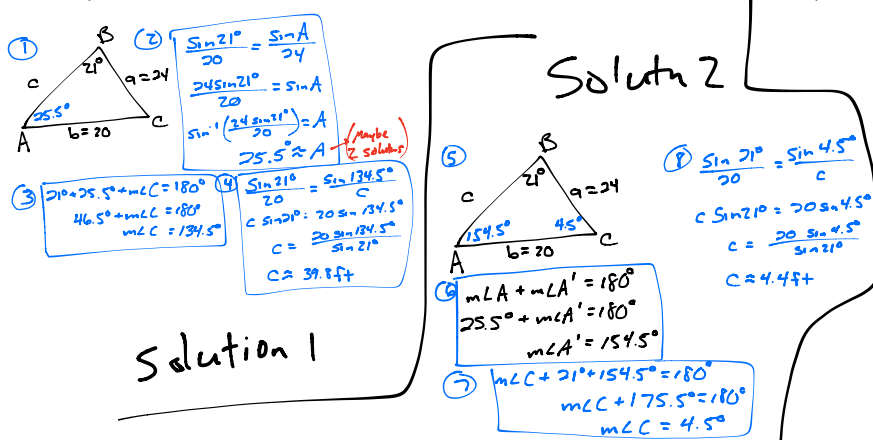 ①
B
21°
c
a = 24
25.5°
A
b = 20
C
②
sin 21° / 20 = sin A / 24
24 sin 21° / 20 = sin A
sin⁻¹(24 sin 21° / 20) = A
25.5° ≈ A → (Maybe 2 solutions)
③
21° + 25.5° + m∠C = 180°
46.5° + m∠C = 180°
m∠C = 134.5°
④
sin 21° / 20 = sin 134.5° / c
c sin 21° = 20 sin 134.5°
c = 20 sin 134.5° / sin 21°
c ≈ 39.8 ft
Solution 1
Solutn 2
⑤
B
21°
c
a = 24
154.5°
4.5°
A
b = 20
C
⑥
m∠A + m∠A' = 180°
25.5° + m∠A' = 180°
m∠A' = 154.5°
⑦
m∠C + 21° + 154.5° = 180°
m∠C + 175.5° = 180°
m∠C = 4.5°
⑧
sin 21° / 20 = sin 4.5° / c
c sin 21° = 20 sin 4.5°
c = 20 sin 4.5° / sin 21°
c ≈ 4.4 ft